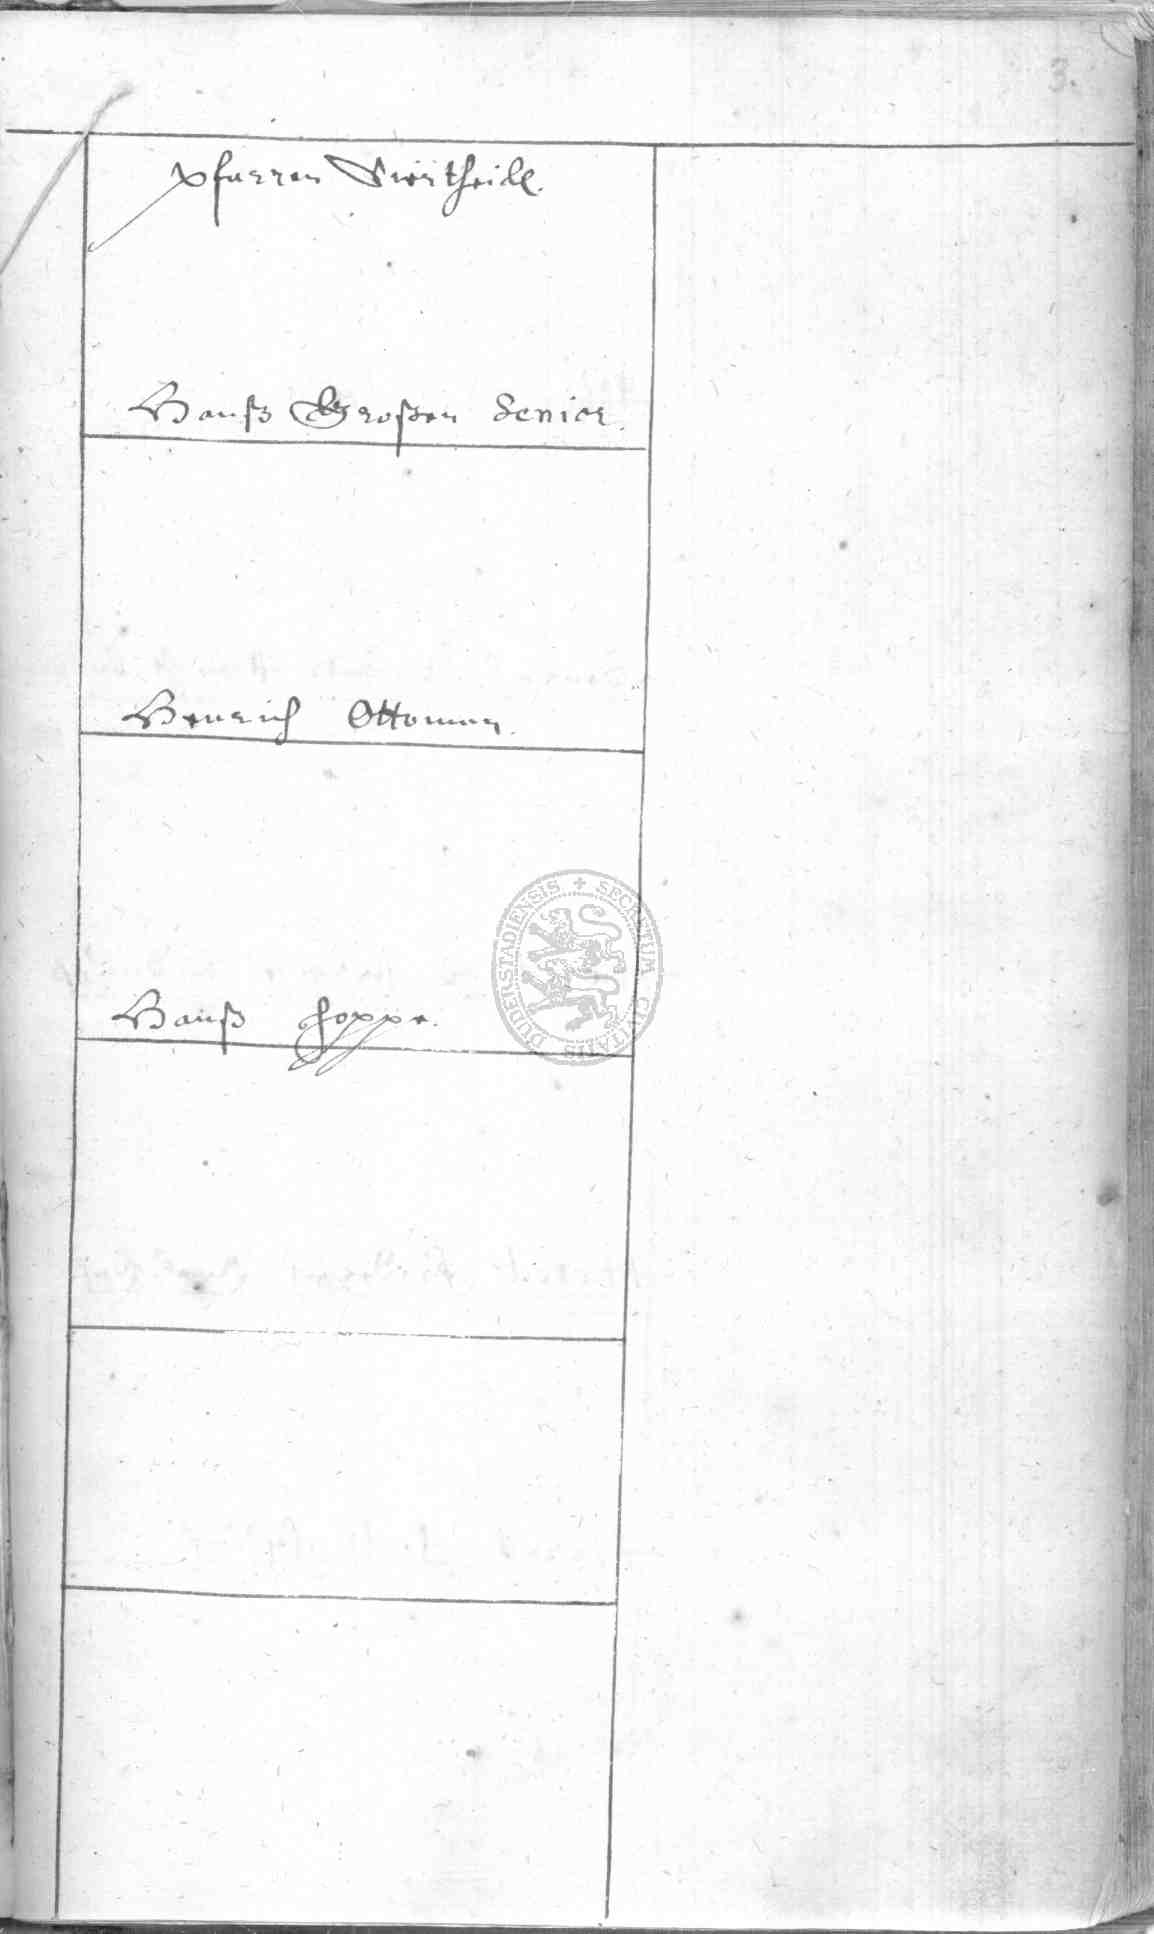 3.
Pfarren Viertheill.
Hanß Großen Senior.
Henrich Ottoman.
Hanß Hoppe.
SECRETUM CIVITATIS DUDERSTADIENSIS